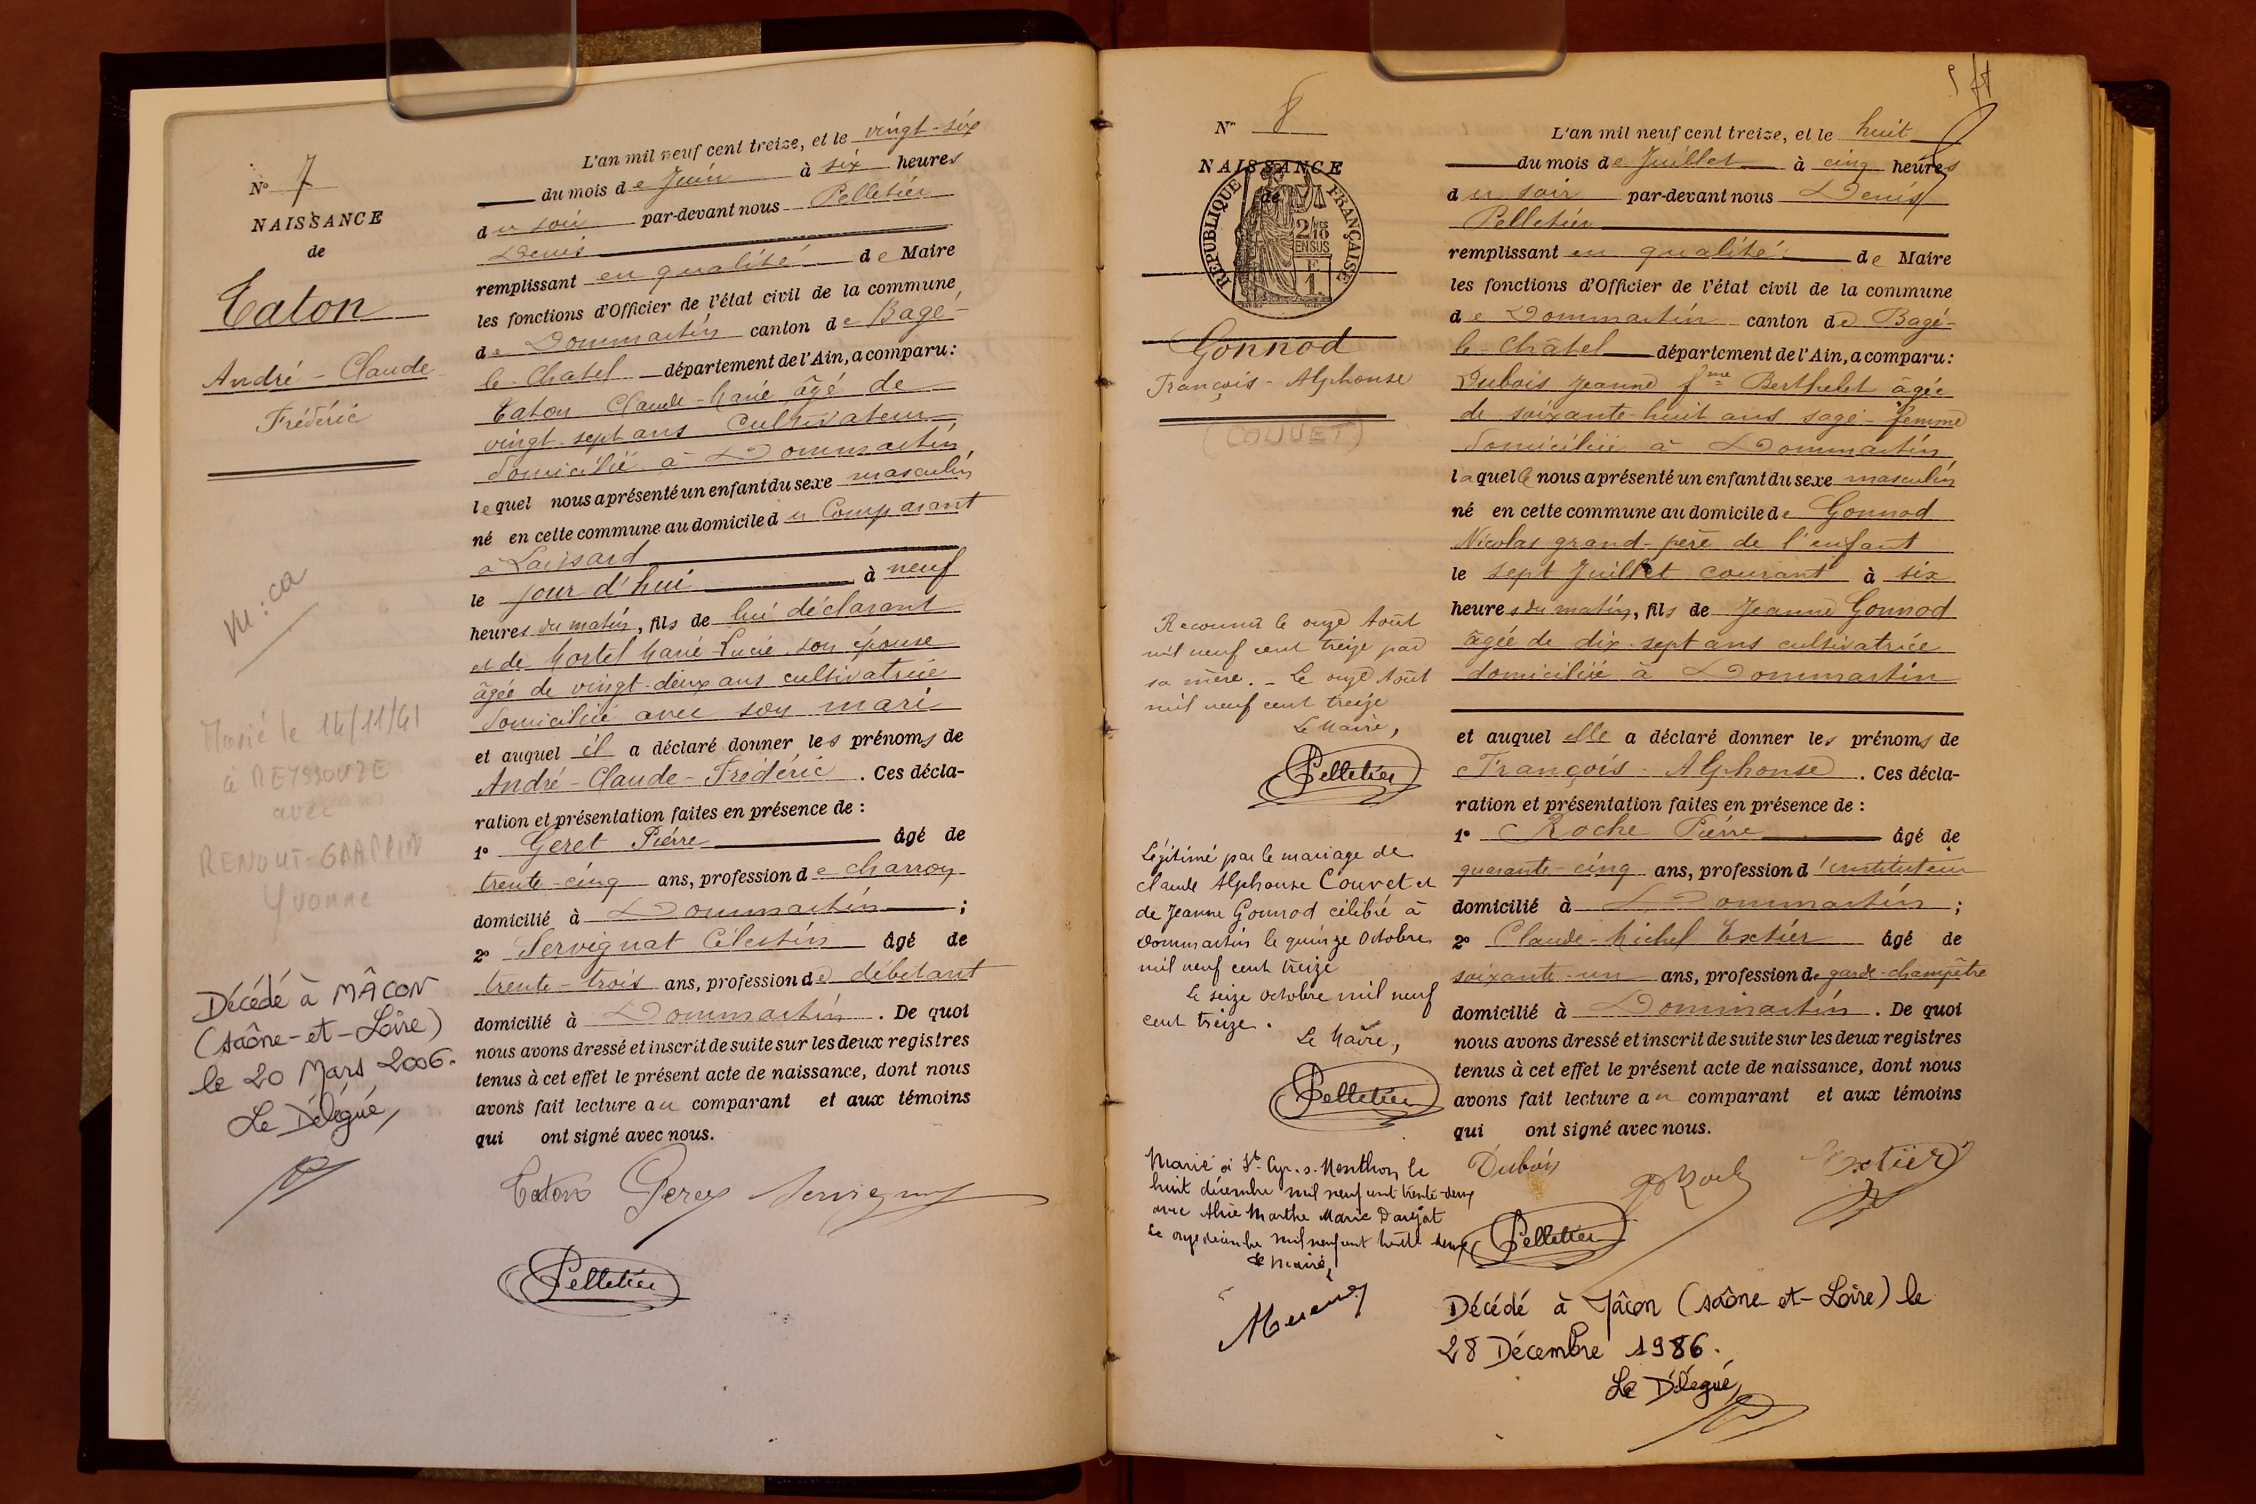 N° 7
NAISSANCE
de
Caton
André - Claude
Frédéric
M : ca
Marié le 14/11/41
à REYSSOUZE
avec
Yvonne
Décédé à MÂCON
(Saône-et-Loire)
le 20 Mars 2006.
Le Délégué,
L'an mil neuf cent treize, et le vingt-six
du mois de Juin à six heures
du soir par-devant nous Pelletier
Denis
remplissant en qualité de Maire
les fonctions d'Officier de l'état civil de la commune
de Dommartin canton de Bagé-
le-Chatel département de l'Ain, a comparu :
Caton Claude-Marie âgé de
vingt-sept ans Cultivateur
domicilié à Dommartin
lequel nous a présenté un enfant du sexe masculin
né en cette commune au domicile du Comparant
à Laissard
le jour d'hui à neuf
heures du matin, fils de lui déclarant
et de Mortel Marie-Lucie son épouse
âgée de vingt-deux ans cultivatrice
domiciliée avec son mari
et auquel il a déclaré donner les prénoms de
André-Claude-Frédéric . Ces décla-
ration et présentation faites en présence de :
1° Geret Pierre âgé de
trente-cinq ans, profession de charron
domicilié à Dommartin ;
2° Servignat Célestin âgé de
trente-trois ans, profession de débitant
domicilié à Dommartin . De quoi
nous avons dressé et inscrit de suite sur les deux registres
tenus à cet effet le présent acte de naissance, dont nous
avons fait lecture au comparant et aux témoins
qui ont signé avec nous.
Caton Geret Servignat
Pelletier
N° 8
NAISSANCE
de
RÉPUBLIQUE FRANÇAISE
2/10
EN SUS
F
1
Gonnod
François - Alphonse
(COUVET)
Reconnu le onze Août
mil neuf cent treize par
sa mère. - Le onze Août
mil neuf cent treize
Le Maire,
Pelletier
Légitimé par le mariage de
Claude Alphonse Couvet et
de Jeanne Gonnod célébré à
Dommartin le quinze Octobre
mil neuf cent treize
Le seize Octobre mil neuf
cent treize.
Le Maire,
Pelletier
Marié à St. Cyr. s. Menthon le
huit décembre mil neuf cent trente-deux
avec Alice Marthe Marie
Le onze décembre mil neuf cent trente deux
Le Maire,
L'an mil neuf cent treize, et le huit
du mois de Juillet à cinq heures
du soir par-devant nous Denis
Pelletier
remplissant en qualité de Maire
les fonctions d'Officier de l'état civil de la commune
de Dommartin canton de Bagé-
le-Châtel département de l'Ain, a comparu :
Dubois Jeanne fme Berthelet âgée
de soixante-huit ans sage-femme
domiciliée à Dommartin
laquelle nous a présenté un enfant du sexe masculin
né en cette commune au domicile de Gonnod
Nicolas grand-père de l'enfant
le sept Juillet courant à six
heures du matin, fils de Jeanne Gonnod
âgée de dix-sept ans cultivatrice
domiciliée à Dommartin
et auquel elle a déclaré donner les prénoms de
François-Alphonse . Ces décla-
ration et présentation faites en présence de :
1° Roche Pierre âgé de
quarante-cinq ans, profession d'instituteur
domicilié à Dommartin ;
2° Claude-Michel Extier âgé de
soixante-un ans, profession de garde-champêtre
domicilié à Dommartin . De quoi
nous avons dressé et inscrit de suite sur les deux registres
tenus à cet effet le présent acte de naissance, dont nous
avons fait lecture au comparant et aux témoins
qui ont signé avec nous.
Dubois Roche Extier
Pelletier
Décédé à Mâcon (Saône-et-Loire) le
28 Décembre 1986.
Le Délégué,